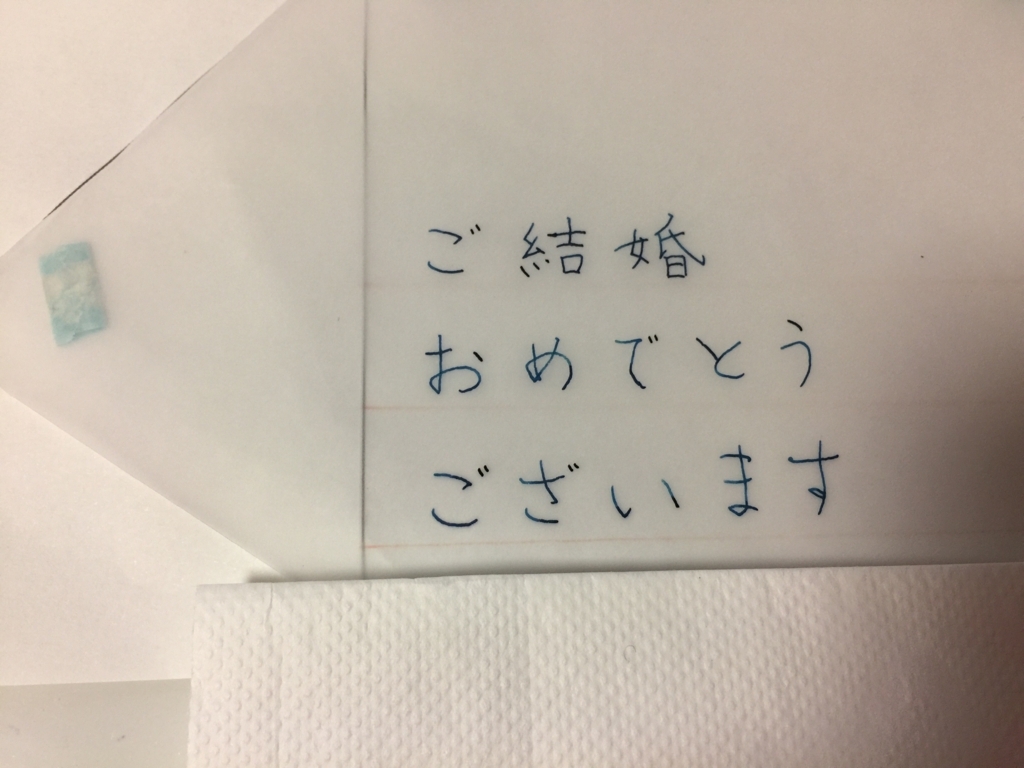 ご結婚
おめでとう
ございます